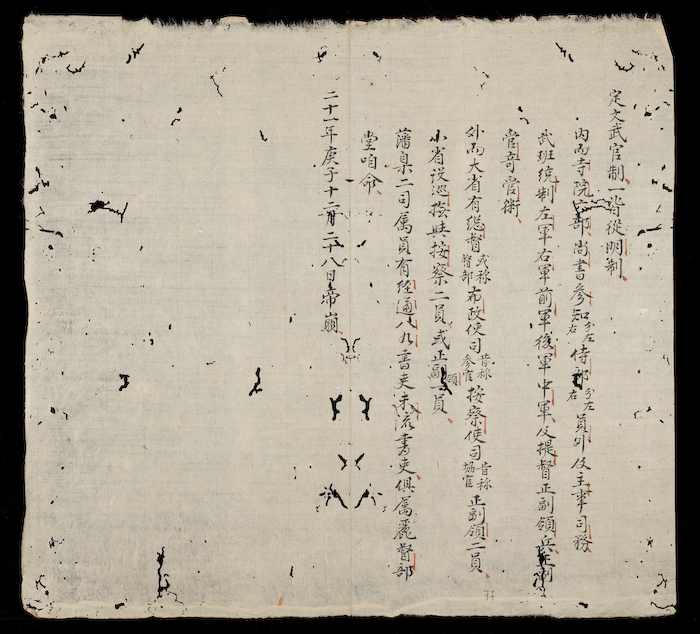 定文武官制一皆從明制
內而寺院六部尚書參知分左右侍郎分左右員外及主事司務
武班統制左軍右軍前軍後軍中軍及提督正副領兵正副
管奇管衛
外而大省有總督或称督部布政使司昔称參官按察使司昔称協官正副領二員
小省設巡撫與按察二員或正副領一員
藩臬二司属員有經通八九書吏未流書吏俱属麗督部
堂咱命
二十一年庚子十二月二十八日帝崩